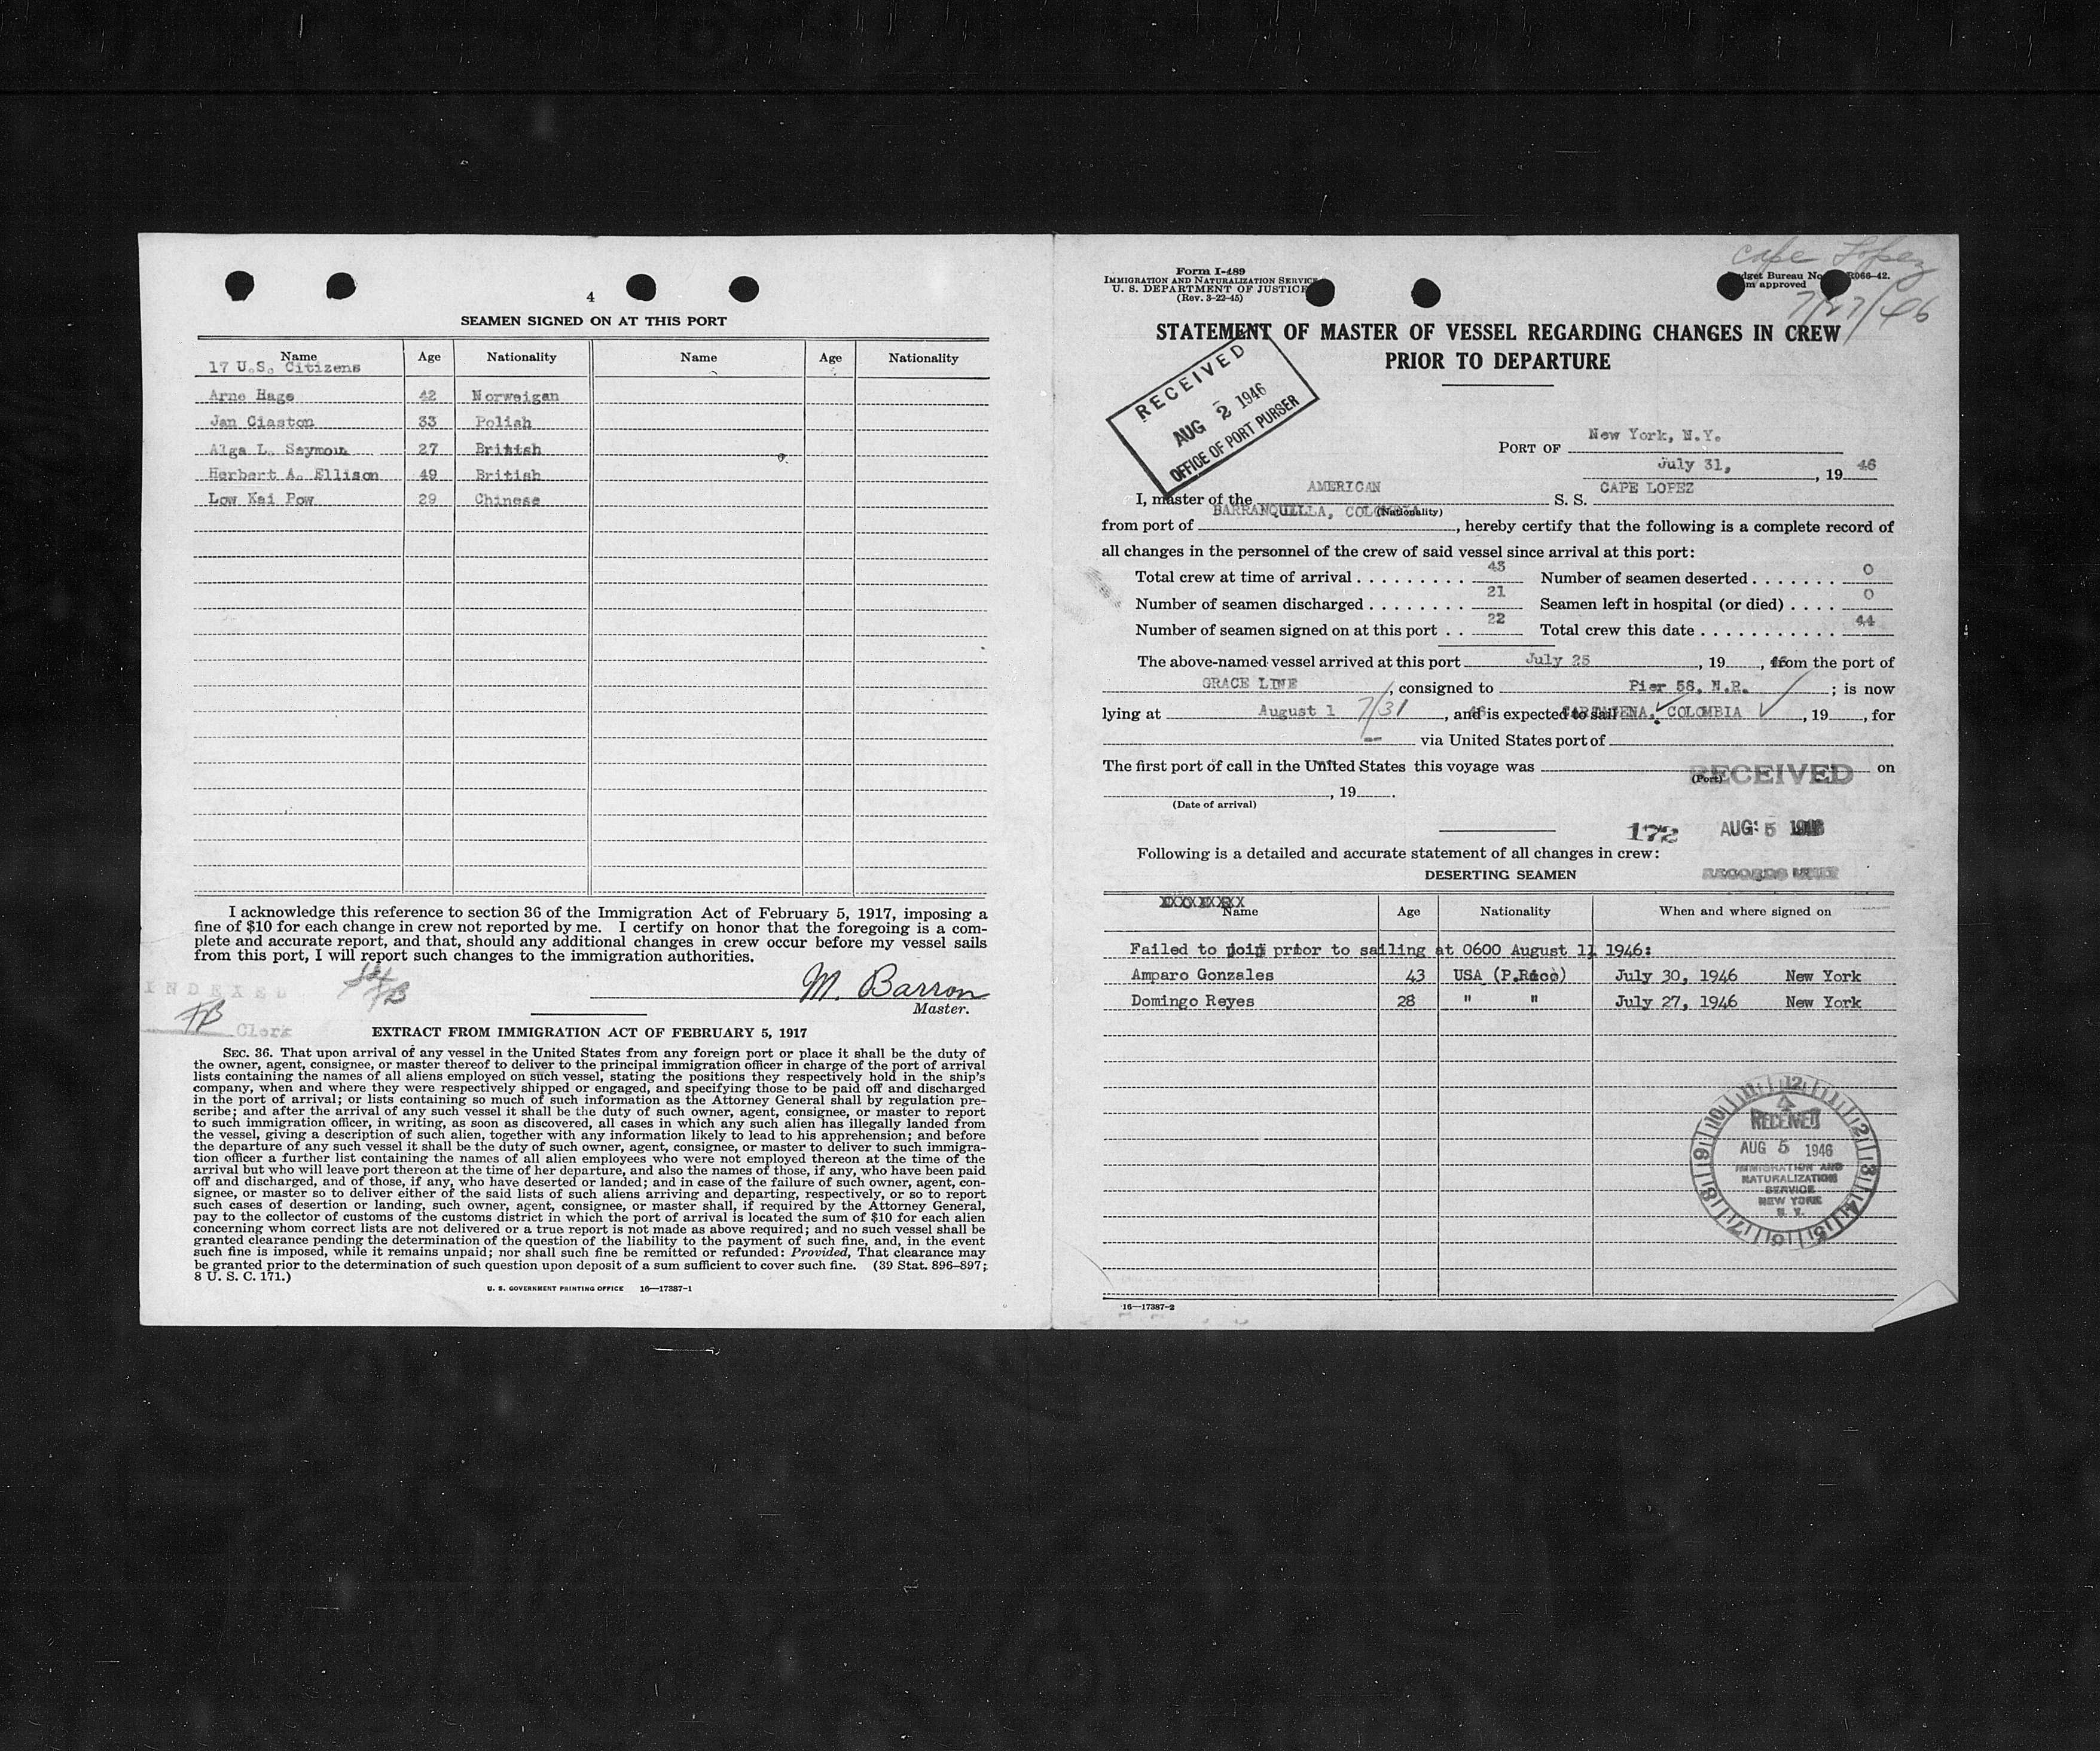 4
SEAMEN SIGNED ON AT THIS PORT
Name Age Nationality Name Age Nationality
17 U.S. Citizens
Arne Hage 42 Norweigan
Jan Ciaston 33 Polish
Alga L. Seymour 27 British
Herbert A. Ellison 49 British
Low Kai Pow 29 Chinese
I acknowledge this reference to section 36 of the Immigration Act of February 5, 1917, imposing a
fine of $10 for each change in crew not reported by me. I certify on honor that the foregoing is a com-
plete and accurate report, and that, should any additional changes in crew occur before my vessel sails
from this port, I will report such changes to the immigration authorities.
INDEXED
M. Barron
Master.
Clerk
EXTRACT FROM IMMIGRATION ACT OF FEBRUARY 5, 1917
SEC. 36. That upon arrival of any vessel in the United States from any foreign port or place it shall be the duty of
the owner, agent, consignee, or master thereof to deliver to the principal immigration officer in charge of the port of arrival
lists containing the names of all aliens employed on such vessel, stating the positions they respectively hold in the ship's
company, when and where they were respectively shipped or engaged, and specifying those to be paid off and discharged
in the port of arrival; or lists containing so much of such information as the Attorney General shall by regulation pre-
scribe; and after the arrival of any such vessel it shall be the duty of such owner, agent, consignee, or master to report
to such immigration officer, in writing, as soon as discovered, all cases in which any such alien has illegally landed from
the vessel, giving a description of such alien, together with any information likely to lead to his apprehension; and before
the departure of any such vessel it shall be the duty of such owner, agent, consignee, or master to deliver to such immigra-
tion officer a further list containing the names of all alien employees who were not employed thereon at the time of the
arrival but who will leave port thereon at the time of her departure, and also the names of those, if any, who have been paid
off and discharged, and of those, if any, who have deserted or landed; and in case of the failure of such owner, agent, con-
signee, or master so to deliver either of the said lists of such aliens arriving and departing, respectively, or so to report
such cases of desertion or landing, such owner, agent, consignee, or master shall, if required by the Attorney General,
pay to the collector of customs of the customs district in which the port of arrival is located the sum of $10 for each alien
concerning whom correct lists are not delivered or a true report is not made as above required; and no such vessel shall be
granted clearance pending the determination of the question of the liability to the payment of such fine, and, in the event
such fine is imposed, while it remains unpaid; nor shall such fine be remitted or refunded: Provided, That clearance may
be granted prior to the determination of such question upon deposit of a sum sufficient to cover such fine. (39 Stat. 896–897;
8 U. S. C. 171.)
U. S. GOVERNMENT PRINTING OFFICE 16—17387-1
Cape Lopez
7/27/46
Form I-489
IMMIGRATION AND NATURALIZATION SERVICE
U. S. DEPARTMENT OF JUSTICE
(Rev. 3-22-45)
Budget Bureau No. R066-42.
approved
STATEMENT OF MASTER OF VESSEL REGARDING CHANGES IN CREW
PRIOR TO DEPARTURE
RECEIVED
AUG 2 1946
OFFICE OF PORT PURSER
PORT OF New York, N.Y.
July 31, , 19 46
I, master of the AMERICAN S. S. CAPE LOPEZ
(Nationality)
from port of BARRANQUILLA, COLOMBIA, hereby certify that the following is a complete record of
all changes in the personnel of the crew of said vessel since arrival at this port:
Total crew at time of arrival 43 Number of seamen deserted 0
Number of seamen discharged 21 Seamen left in hospital (or died) 0
Number of seamen signed on at this port 22 Total crew this date 44
The above-named vessel arrived at this port July 25 , 19 46, from the port of
GRACE LINE , consigned to Pier 58, N.R. ; is now
lying at August 1 7/31 , and is expected to sail 46 CARTAGENA, COLOMBIA , 19 , for
-- via United States port of
The first port of call in the United States this voyage was on
(Port)
RECEIVED
, 19 .
(Date of arrival)
172 AUG 5 1946
Following is a detailed and accurate statement of all changes in crew:
DESERTING SEAMEN
RECORDS UNIT
Name Age Nationality When and where signed on
Failed to join prior to sailing at 0600 August 1, 1946:
Amparo Gonzales 43 USA (P.Rico) July 30, 1946 New York
Domingo Reyes 28 " " July 27, 1946 New York
RECEIVED
AUG 5 1946
IMMIGRATION AND
NATURALIZATION
SERVICE
NEW YORK
N. Y.
16—17387-2